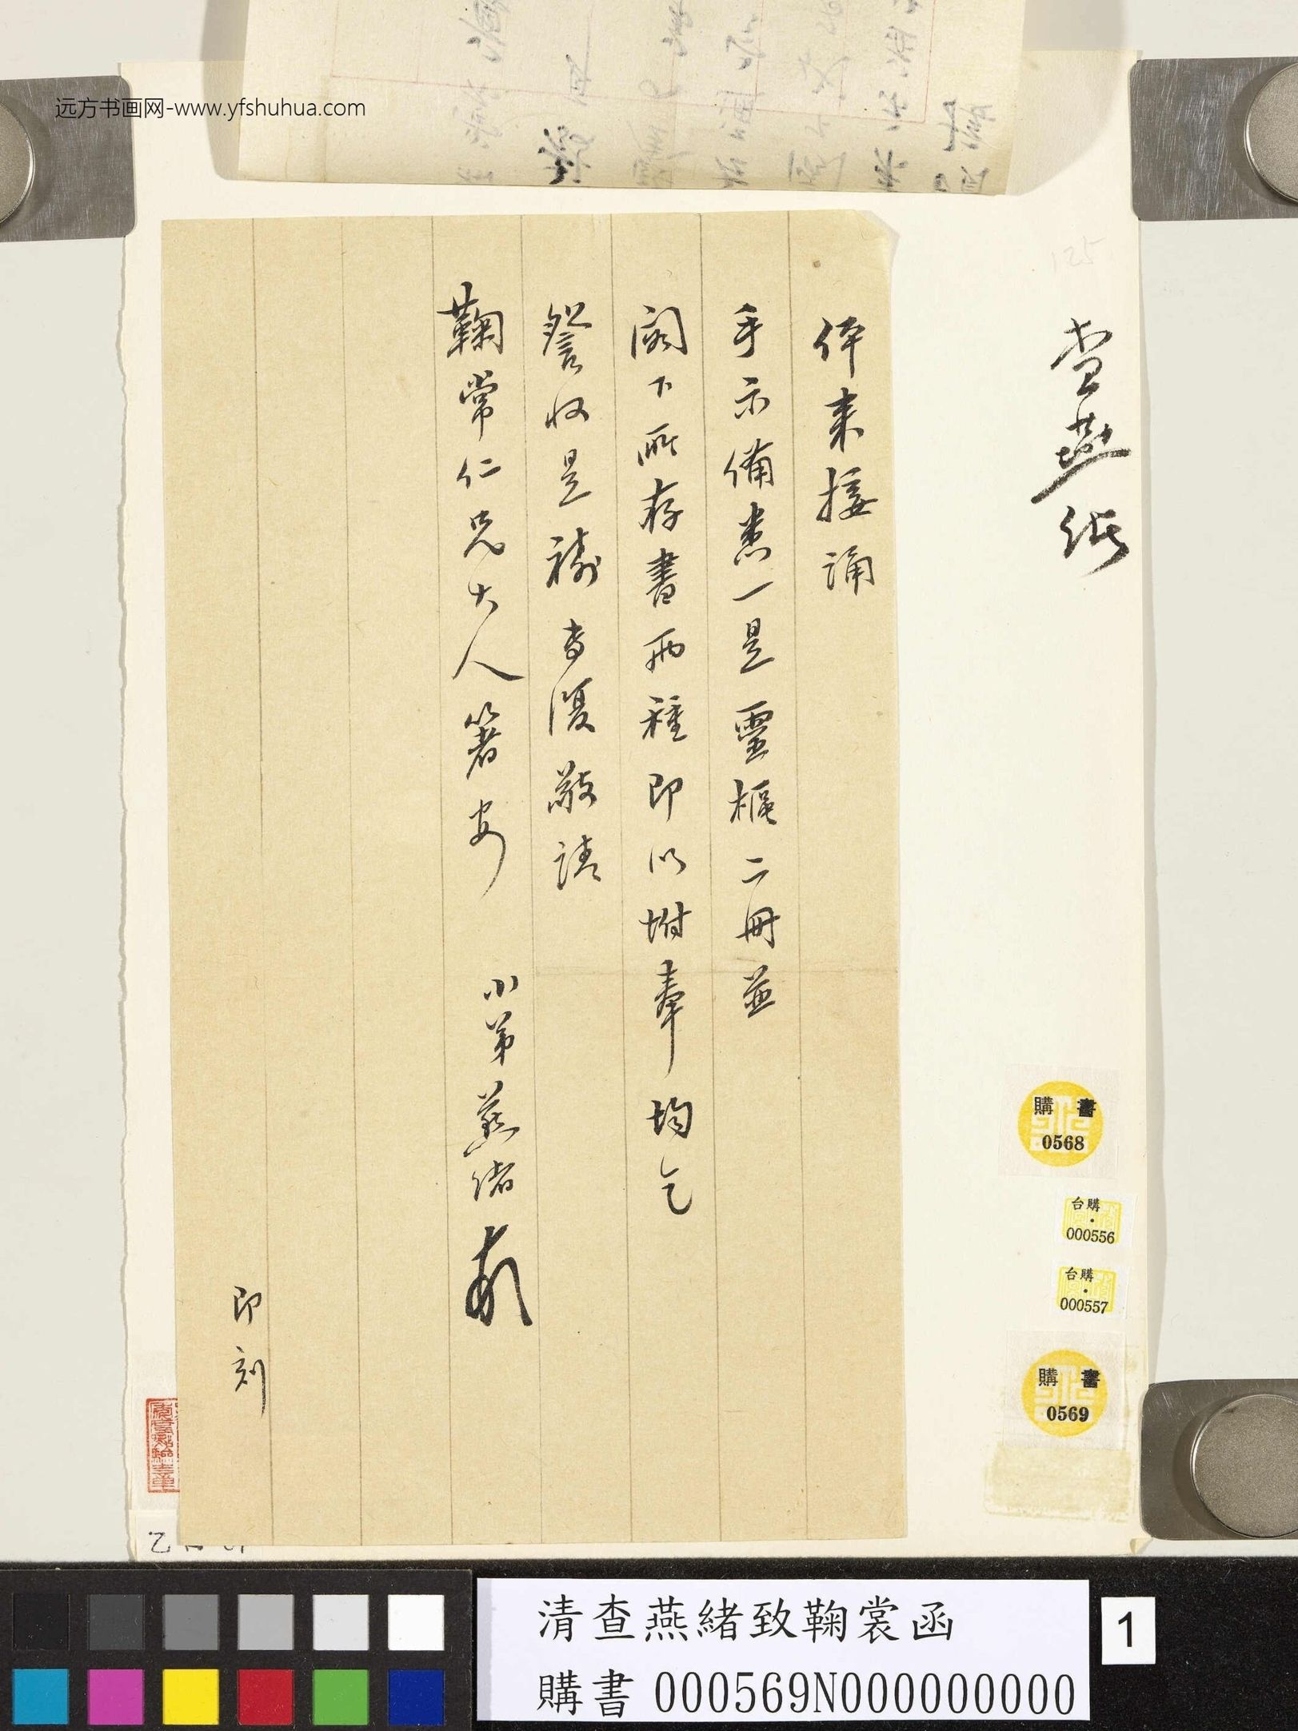 远方书画网-www.yfshuhua.com
125
查燕緒
伻来接誦
手示備悉一是靈樞二冊並
閣下所存書兩種即以坿奉均乞
詧收是禱専復敬請
鞠常仁兄大人箸安
小弟燕緒頓
即刻
購書
0568
台購
000556
台購
000557
購書
0569
清查燕緒致鞠裳函
購書 000569N000000000
1